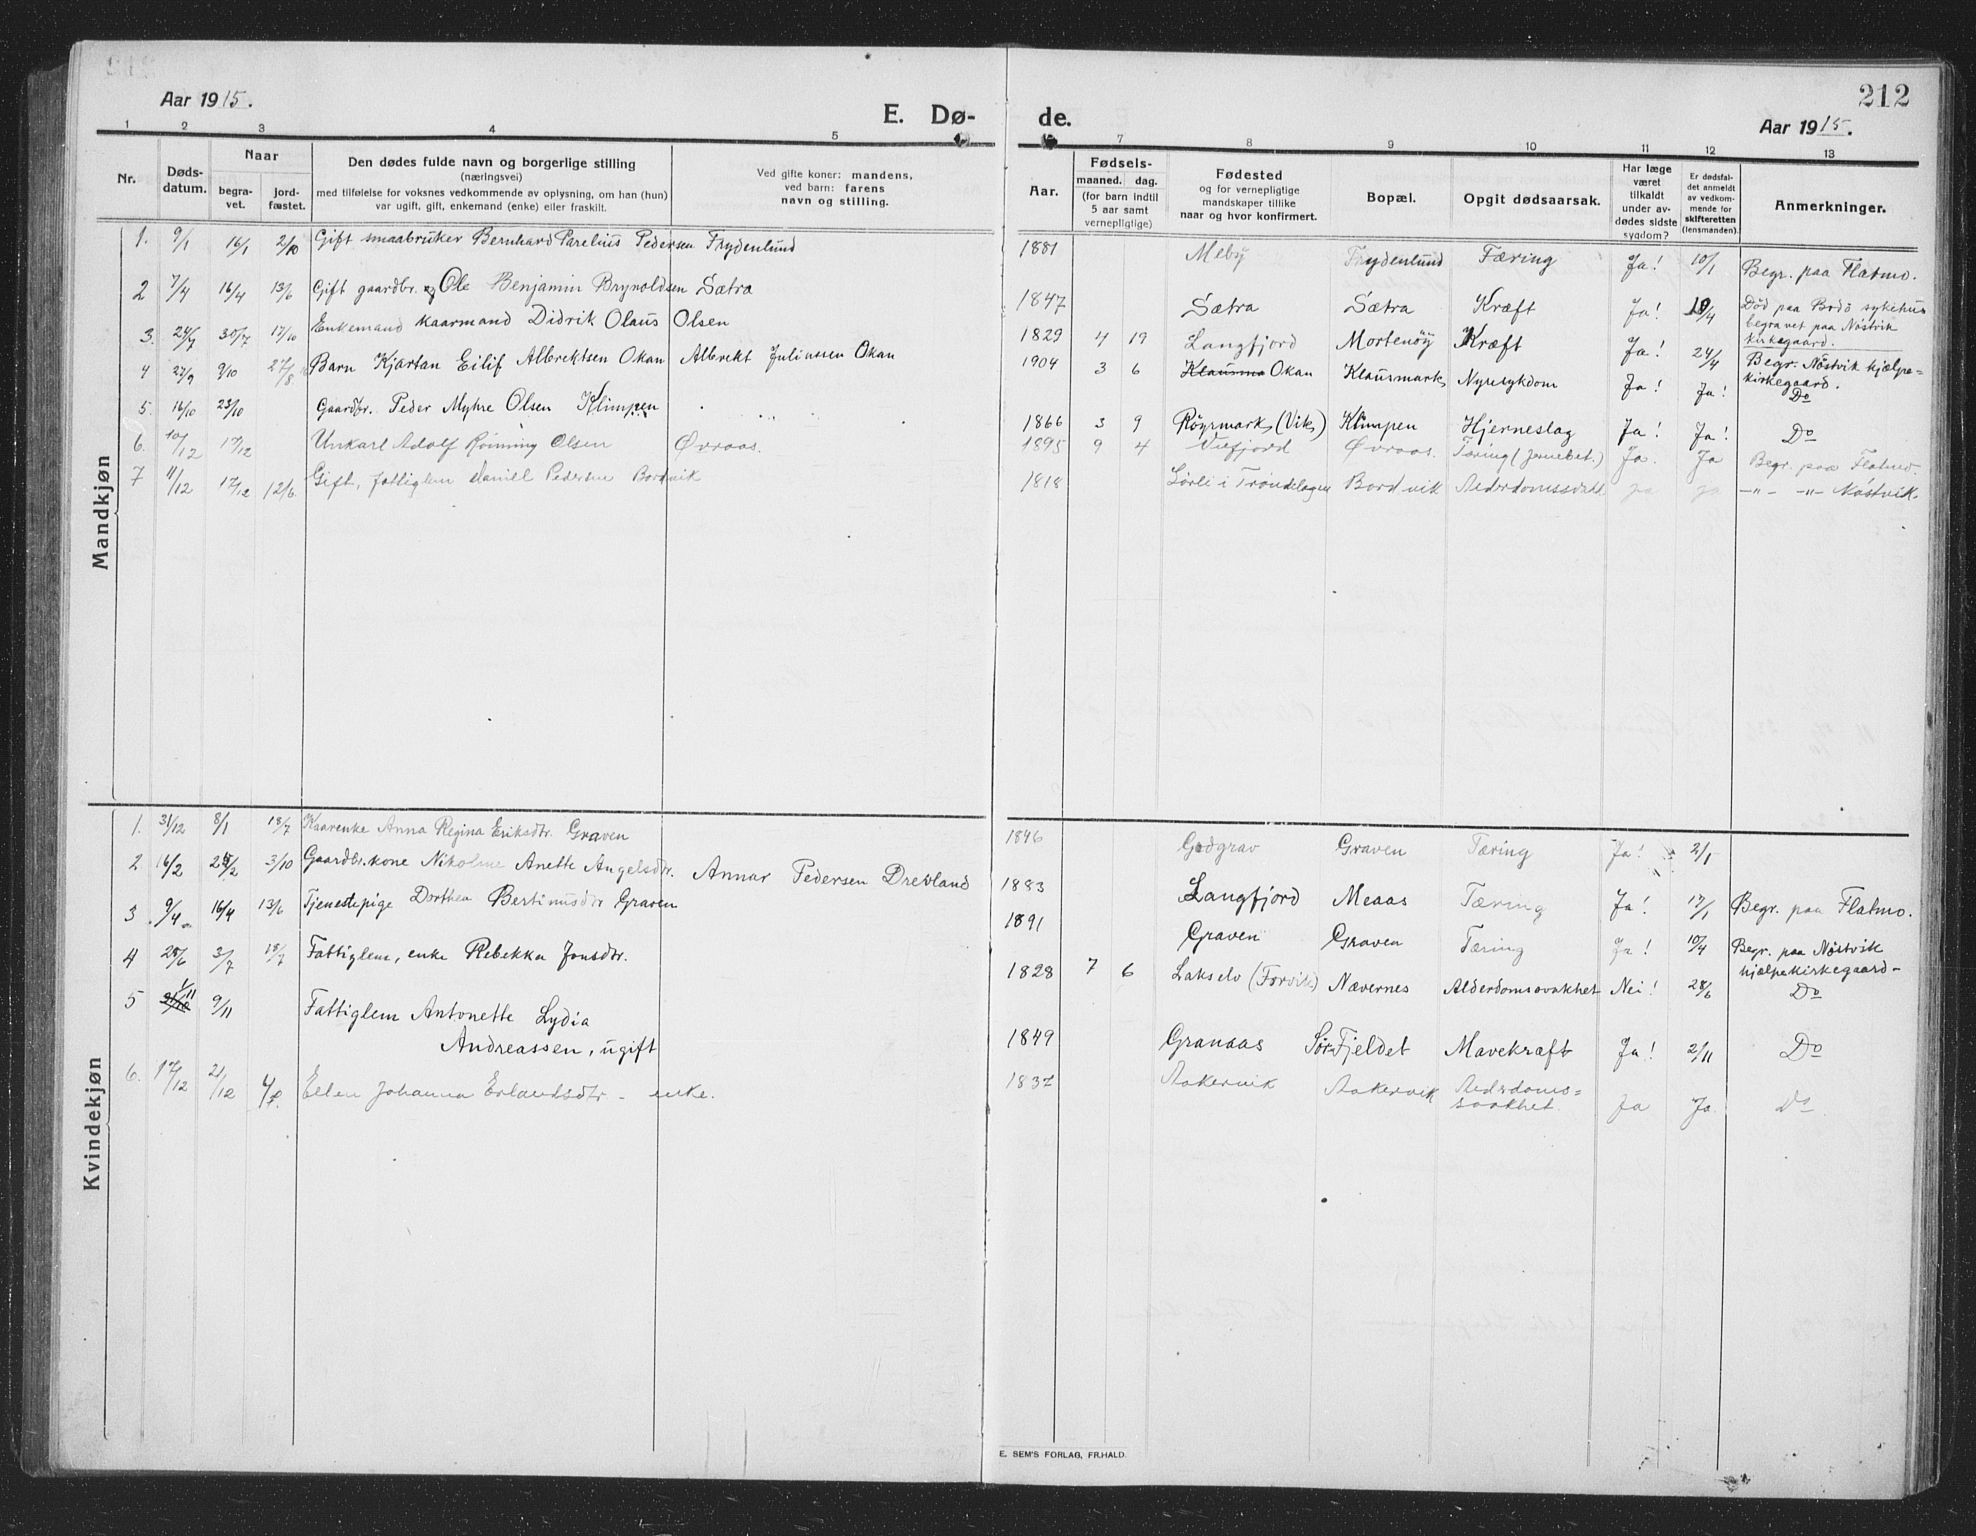 212
Aar 1915.
E. Dø-
de.
Aar 1915.
1 2 3 4 5 7 8 9 10 11 12 13
Nr.
Døds-
datum.
Naar
begra-
vet.
jord-
fæstet.
Den dødes fulde navn og borgerlige stilling
(næringsvei)
med tilføielse for voksnes vedkommende av oplysning, om han (hun)
var ugift, gift, enkemand (enke) eller fraskilt.
Ved gifte koner: mandens,
ved barn: farens
navn og stilling.
Aar.
Fødsels-
maaned. dag.
(for barn indtil
5 aar samt
vernepligtige)
Fødested
og for vernepligtige
mandskaper tillike
naar og hvor konfirmert.
Bopæl.
Opgit dødsaarsak.
Har læge
været
tilkaldt
under av-
dødes sidste
sygdom?
Er dødsfal-
det anmeldt
av vedkom-
mende for
skifteretten
(lensmanden).
Anmerkninger.
Mandkjøn
1. 9/1 16/1 2/10 Gift smaabruker Bernhard Parelius Pedersen Frydenlund 1881 Meby Frydenlund Tæring Ja! 10/1 Begr. paa Flatmo.
2 7/4 16/4 13/6 Gift gaardbr. Ole Benjamin Brynoldsen Sætra 1847 Sætra Sætra Kræft Ja! 10/4 Død paa Bodö sykehus
begravet paa Nöstvik
kirkegaard.
3. 24/7 30/7 17/10 Enkemand kaarmand Didrik Olaus Olsen 1829 4 19 Langfjord Mortenöy Kræft Ja! 24/4 Begr. Nöstvik hjælpe-
kirkegaard.
4 27/9 9/10 27/8 Barn Kjartan Eilif Albrektsen Okan Albrekt Julinssen Okan 1904 3 6 Okan Klausmark Nyresykdom Ja! Ja! Do
5. 16/10 23/10 Gaardbr. Peder Myhre Olsen Klimpen 1866 3 9 Röyrmark (Vik) Klimpen Hjerneslag Ja! Ja! Do
6. 10/12 17/12 Unkarl Adolf Rönning Olsen Øvraas. 1895 9 4 Visfjord Øvraas. Tæring (Jernebet.) Ja. Ja Begr. paa Flatmo
7 11/12 17/12 12/6 Gift, fattiglem Daniel Pedersen Bordvik 1818 Lörli i Tröndelagen Bordvik Alderdomssvakh. ja ja -"- -"- Nöstvik.
Kvindekjøn
1. 31/12 8/1 18/7 Kaarenke Anna Regina Eriksdtr. Graven 1846 Godgrav Graven Tæring Ja! 2/1
2 16/2 25/2 3/10 Gaardbr.kone Nikoline Anette Angelsdtr. Annar Pedersen Drevland 1883 Langfjord Meaas Tæring Ja! 17/1 Begr. paa Flatmo.
3 9/4 16/4 13/6 Tjenestepige Dorthea Bertinusdtr Graven 1891 Graven Graven Tæring Ja! 10/4 Begr. paa Nöstvik
hjælpekirkegaard-
4 25/6 3/7 18/7 Fattiglem, enke Rebekka Jonsdtr. 1828 7 6 Lakselv (Forvik) Nævernes Alderdomssvakhet Nei! 28/6 Do
5 1/11 9/11 Fattiglem Antonette Lydia
Andreassen, ugift 1849 Granaas Sör-Fjeldet Mavekræft Ja! 2/11 Do
6. 17/12 21/12 Ellen Johanna Erlandsdtr - enke. 1837 Aakervik Aakervik Alderdoms=
svakhet. Ja Ja. Do
E. SEM'S FORLAG, FR.HALD.